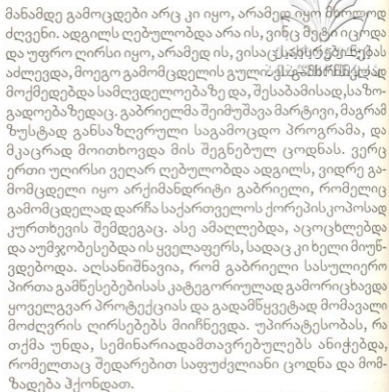 მანამდე გამოცდები არც კი იყო, არამედ იყო მხოლოდ
ძღვენი. ადგილს ღებულობდა არა ის, ვინც მეტი იცოდა
და უფრო ღირსი იყო, არამედ ის, ვისაც სახსრები ნებას
აძლევდა, მოეგო გამომცდელის გული. ეს საზიანოდ
მოქმედებდა სამღვდელოებაზე და, შესაბამისად, საზო-
გადოებაზედაც. გაბრიელმა შეიმუშავა მარტივი, მაგრამ
ზუსტად განსაზღვრული საგამოცდო პროგრამა, და
მკაცრად მოითხოვდა მის შეგნებულ ცოდნას. ვერც
ერთი უღირსი ვეღარ ღებულობდა ადგილს, ვიდრე გა-
მომცდელი იყო არქიმანდრიტი გაბრიელი, რომელიც
გამომცდელად დარჩა საქართველოს ქორეპისკოპოსად
კურთხევის შემდეგაც. ასე ამაღლებდა, აცოცხლებდა
და აუმჯობესებდა ის ყველაფერს, სადაც კი ხელი მიუწ-
ვდებოდა. აღსანიშნავია, რომ გაბრიელი სასულიერო
პირთა გამწესებებისას კატეგორიულად გამორიცხავდა
ყოველგვარ პროტექციას და გადამწყვეტად მომავალი
მოძღვრის ღირსებებს მიიჩნევდა. უპირატესობას, რა
თქმა უნდა, სემინარიადამთავრებულებს ანიჭებდა,
რომელთაც შედარებით საფუძვლიანი ცოდნა და მომ-
ზადება ჰქონდათ.